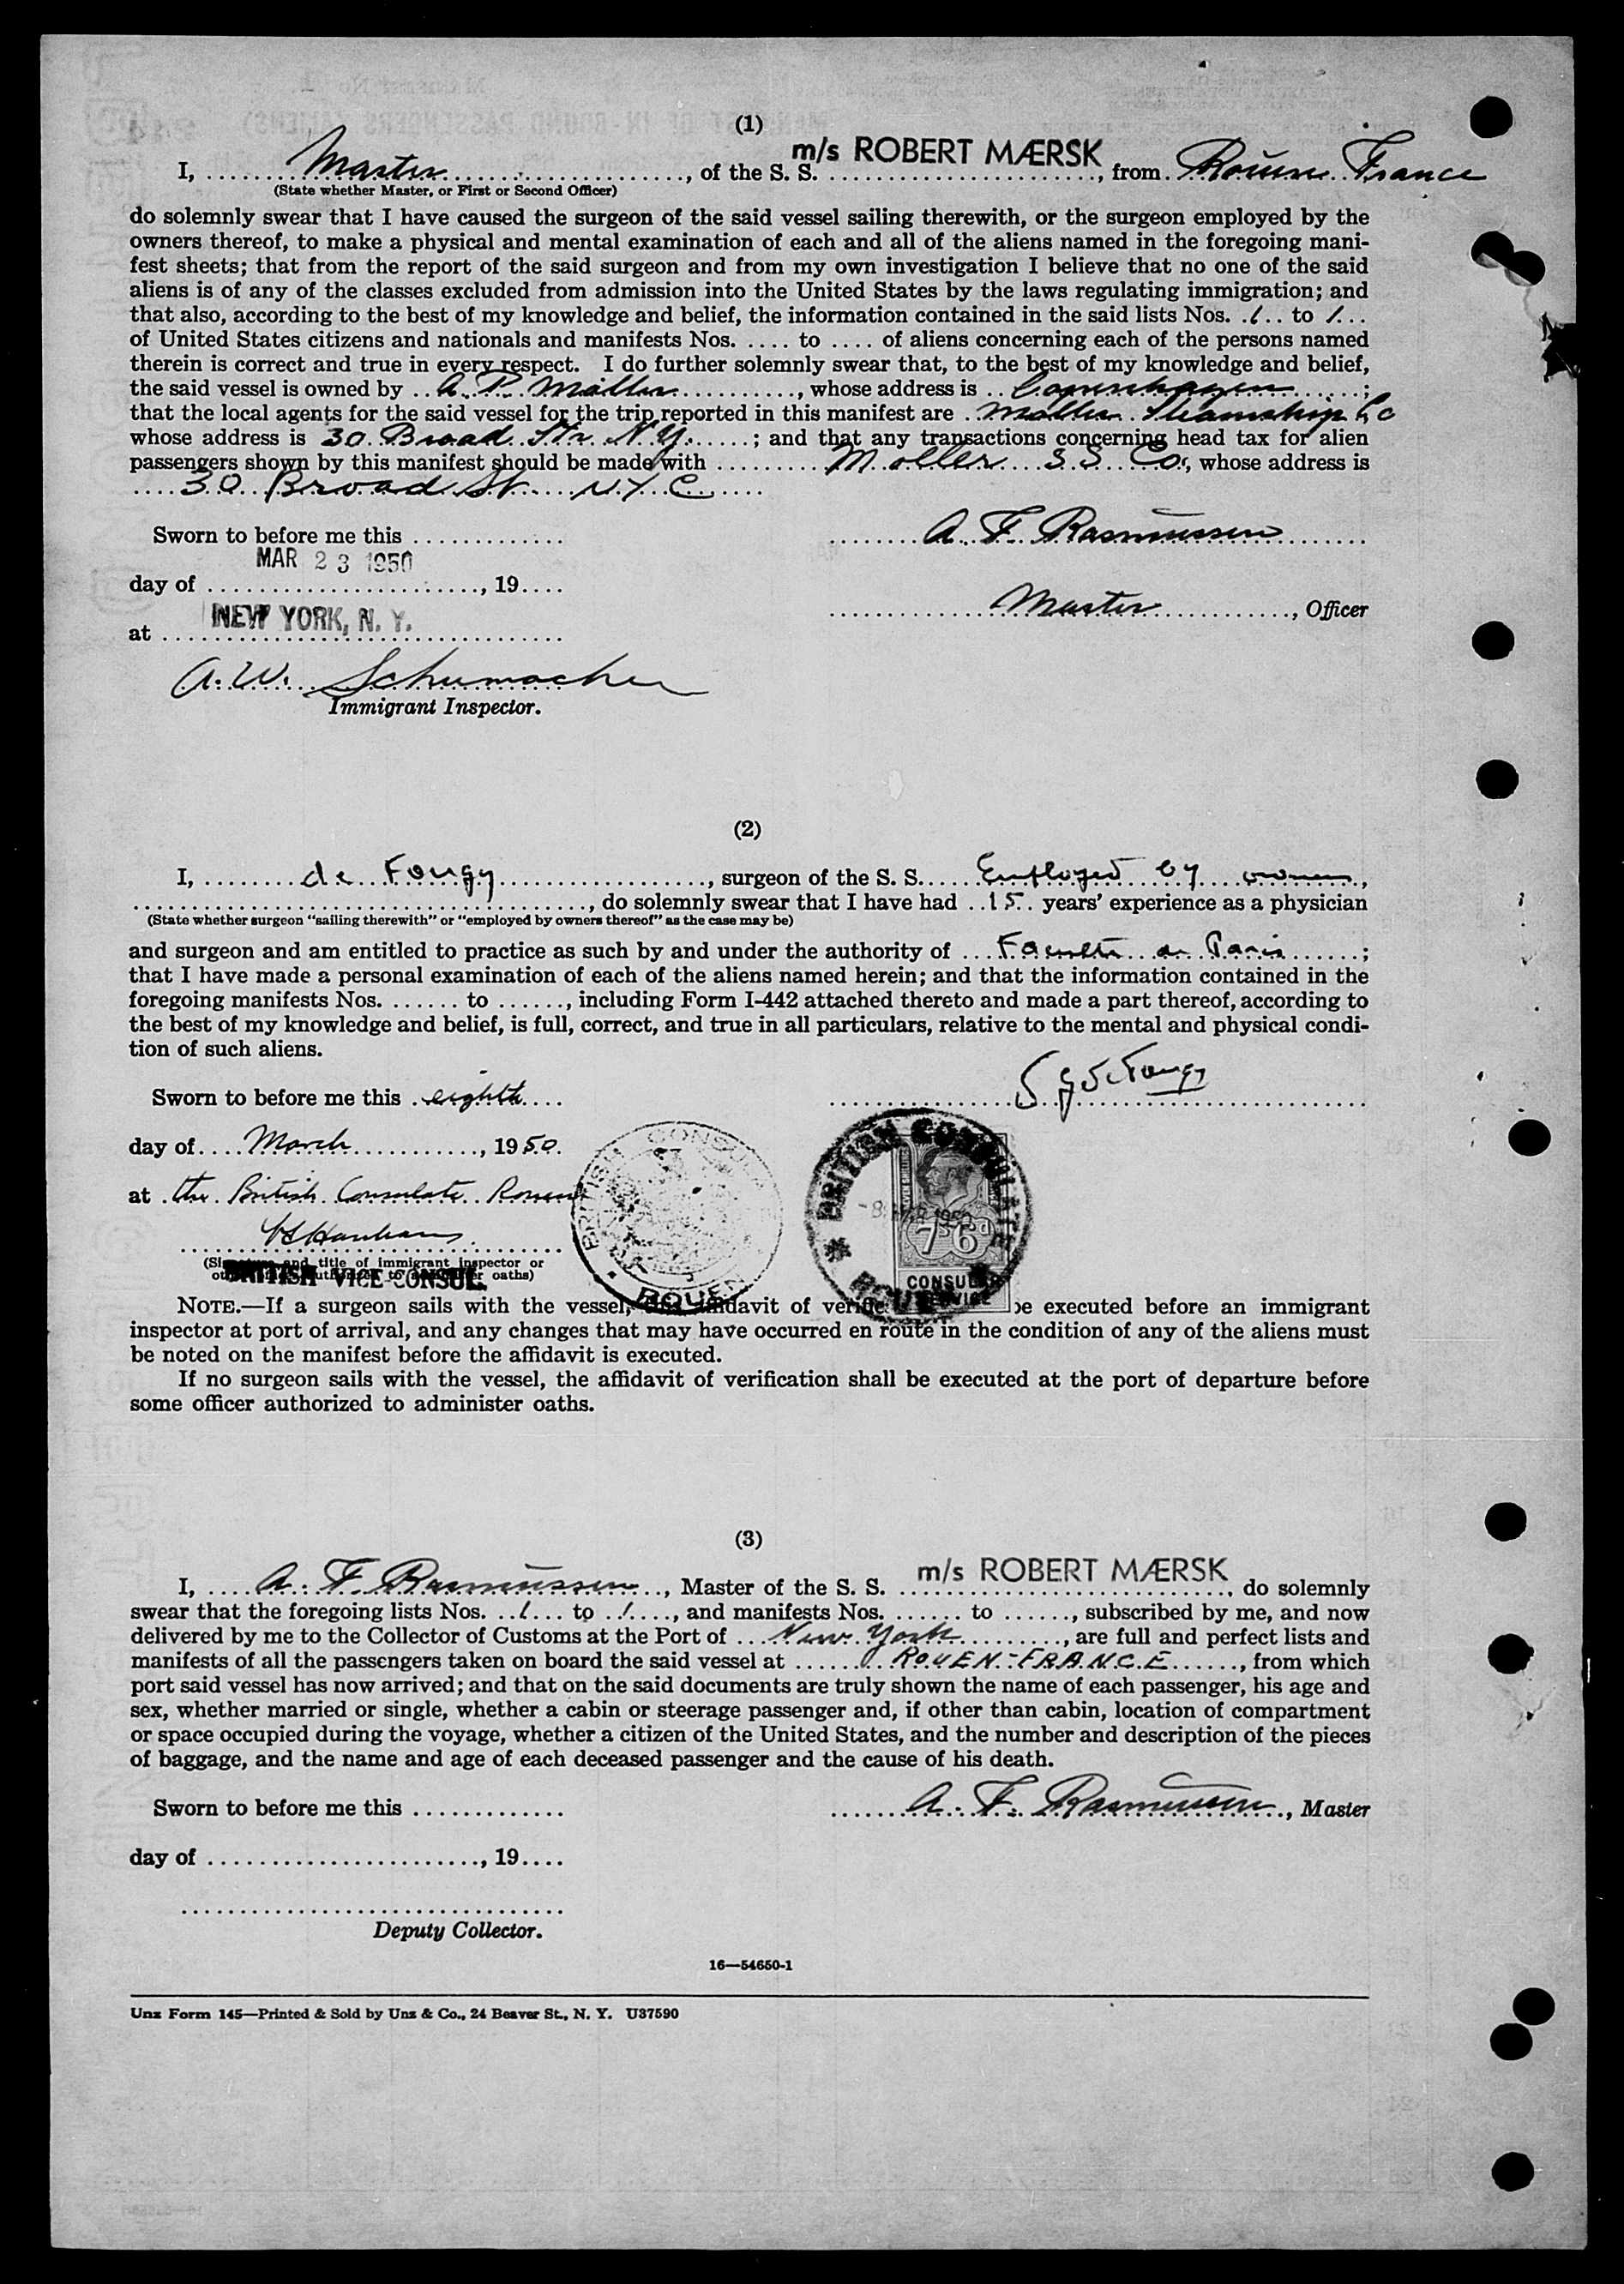 (1)
I, Master, of the S. S. m/s ROBERT MÆRSK, from Rouen France
(State whether Master, or First or Second Officer)
do solemnly swear that I have caused the surgeon of the said vessel sailing therewith, or the surgeon employed by the
owners thereof, to make a physical and mental examination of each and all of the aliens named in the foregoing mani-
fest sheets; that from the report of the said surgeon and from my own investigation I believe that no one of the said
aliens is of any of the classes excluded from admission into the United States by the laws regulating immigration; and
that also, according to the best of my knowledge and belief, the information contained in the said lists Nos. 1 to 1
of United States citizens and nationals and manifests Nos. .... to .... of aliens concerning each of the persons named
therein is correct and true in every respect. I do further solemnly swear that, to the best of my knowledge and belief,
the said vessel is owned by A. P. Möller, whose address is Copenhagen;
that the local agents for the said vessel for the trip reported in this manifest are Möller Steamship Co
whose address is 30 Broad Str. N.Y.; and that any transactions concerning head tax for alien
passengers shown by this manifest should be made with Moller S.S. Co., whose address is
30 Broad St. N.Y.C.
Sworn to before me this ............ A. F. Rasmussen
MAR 23 1950
day of ........................, 19....
Master, Officer
at NEW YORK, N. Y.
A. W. Schumacher
Immigrant Inspector.
(2)
I, de Fougy, surgeon of the S. S. Employed by owners,
........................................, do solemnly swear that I have had 15 years' experience as a physician
(State whether surgeon "sailing therewith" or "employed by owners thereof" as the case may be)
and surgeon and am entitled to practice as such by and under the authority of Faculté de Paris;
that I have made a personal examination of each of the aliens named herein; and that the information contained in the
foregoing manifests Nos. ...... to ......, including Form I-442 attached thereto and made a part thereof, according to
the best of my knowledge and belief, is full, correct, and true in all particulars, relative to the mental and physical condi-
tion of such aliens.
Sworn to before me this eighth
day of March, 1950.
at the British Consulate Rouen
(Signature and title of immigrant inspector or
other authorized to administer oaths)
BRITISH VICE-CONSUL.
BRITISH CONSULATE ROUEN
BRITISH CONSULATE * ROUEN *
-8 MAR 1950
7s6d
CONSULAR SERVICE
NOTE.—If a surgeon sails with the vessel, affidavit of be executed before an immigrant
inspector at port of arrival, and any changes that may have occurred en route in the condition of any of the aliens must
be noted on the manifest before the affidavit is executed.
If no surgeon sails with the vessel, the affidavit of verification shall be executed at the port of departure before
some officer authorized to administer oaths.
(3)
I, A. F. Rasmussen, Master of the S. S. m/s ROBERT MÆRSK, do solemnly
swear that the foregoing lists Nos. 1 to 1, and manifests Nos. ...... to ......, subscribed by me, and now
delivered by me to the Collector of Customs at the Port of New York, are full and perfect lists and
manifests of all the passengers taken on board the said vessel at ROUEN-FRANCE, from which
port said vessel has now arrived; and that on the said documents are truly shown the name of each passenger, his age and
sex, whether married or single, whether a cabin or steerage passenger and, if other than cabin, location of compartment
or space occupied during the voyage, whether a citizen of the United States, and the number and description of the pieces
of baggage, and the name and age of each deceased passenger and the cause of his death.
Sworn to before me this ............ A. F. Rasmussen, Master
day of ........................, 19....
Deputy Collector.
16—54650-1
Unz Form 145—Printed & Sold by Unz & Co., 24 Beaver St., N. Y. U37590